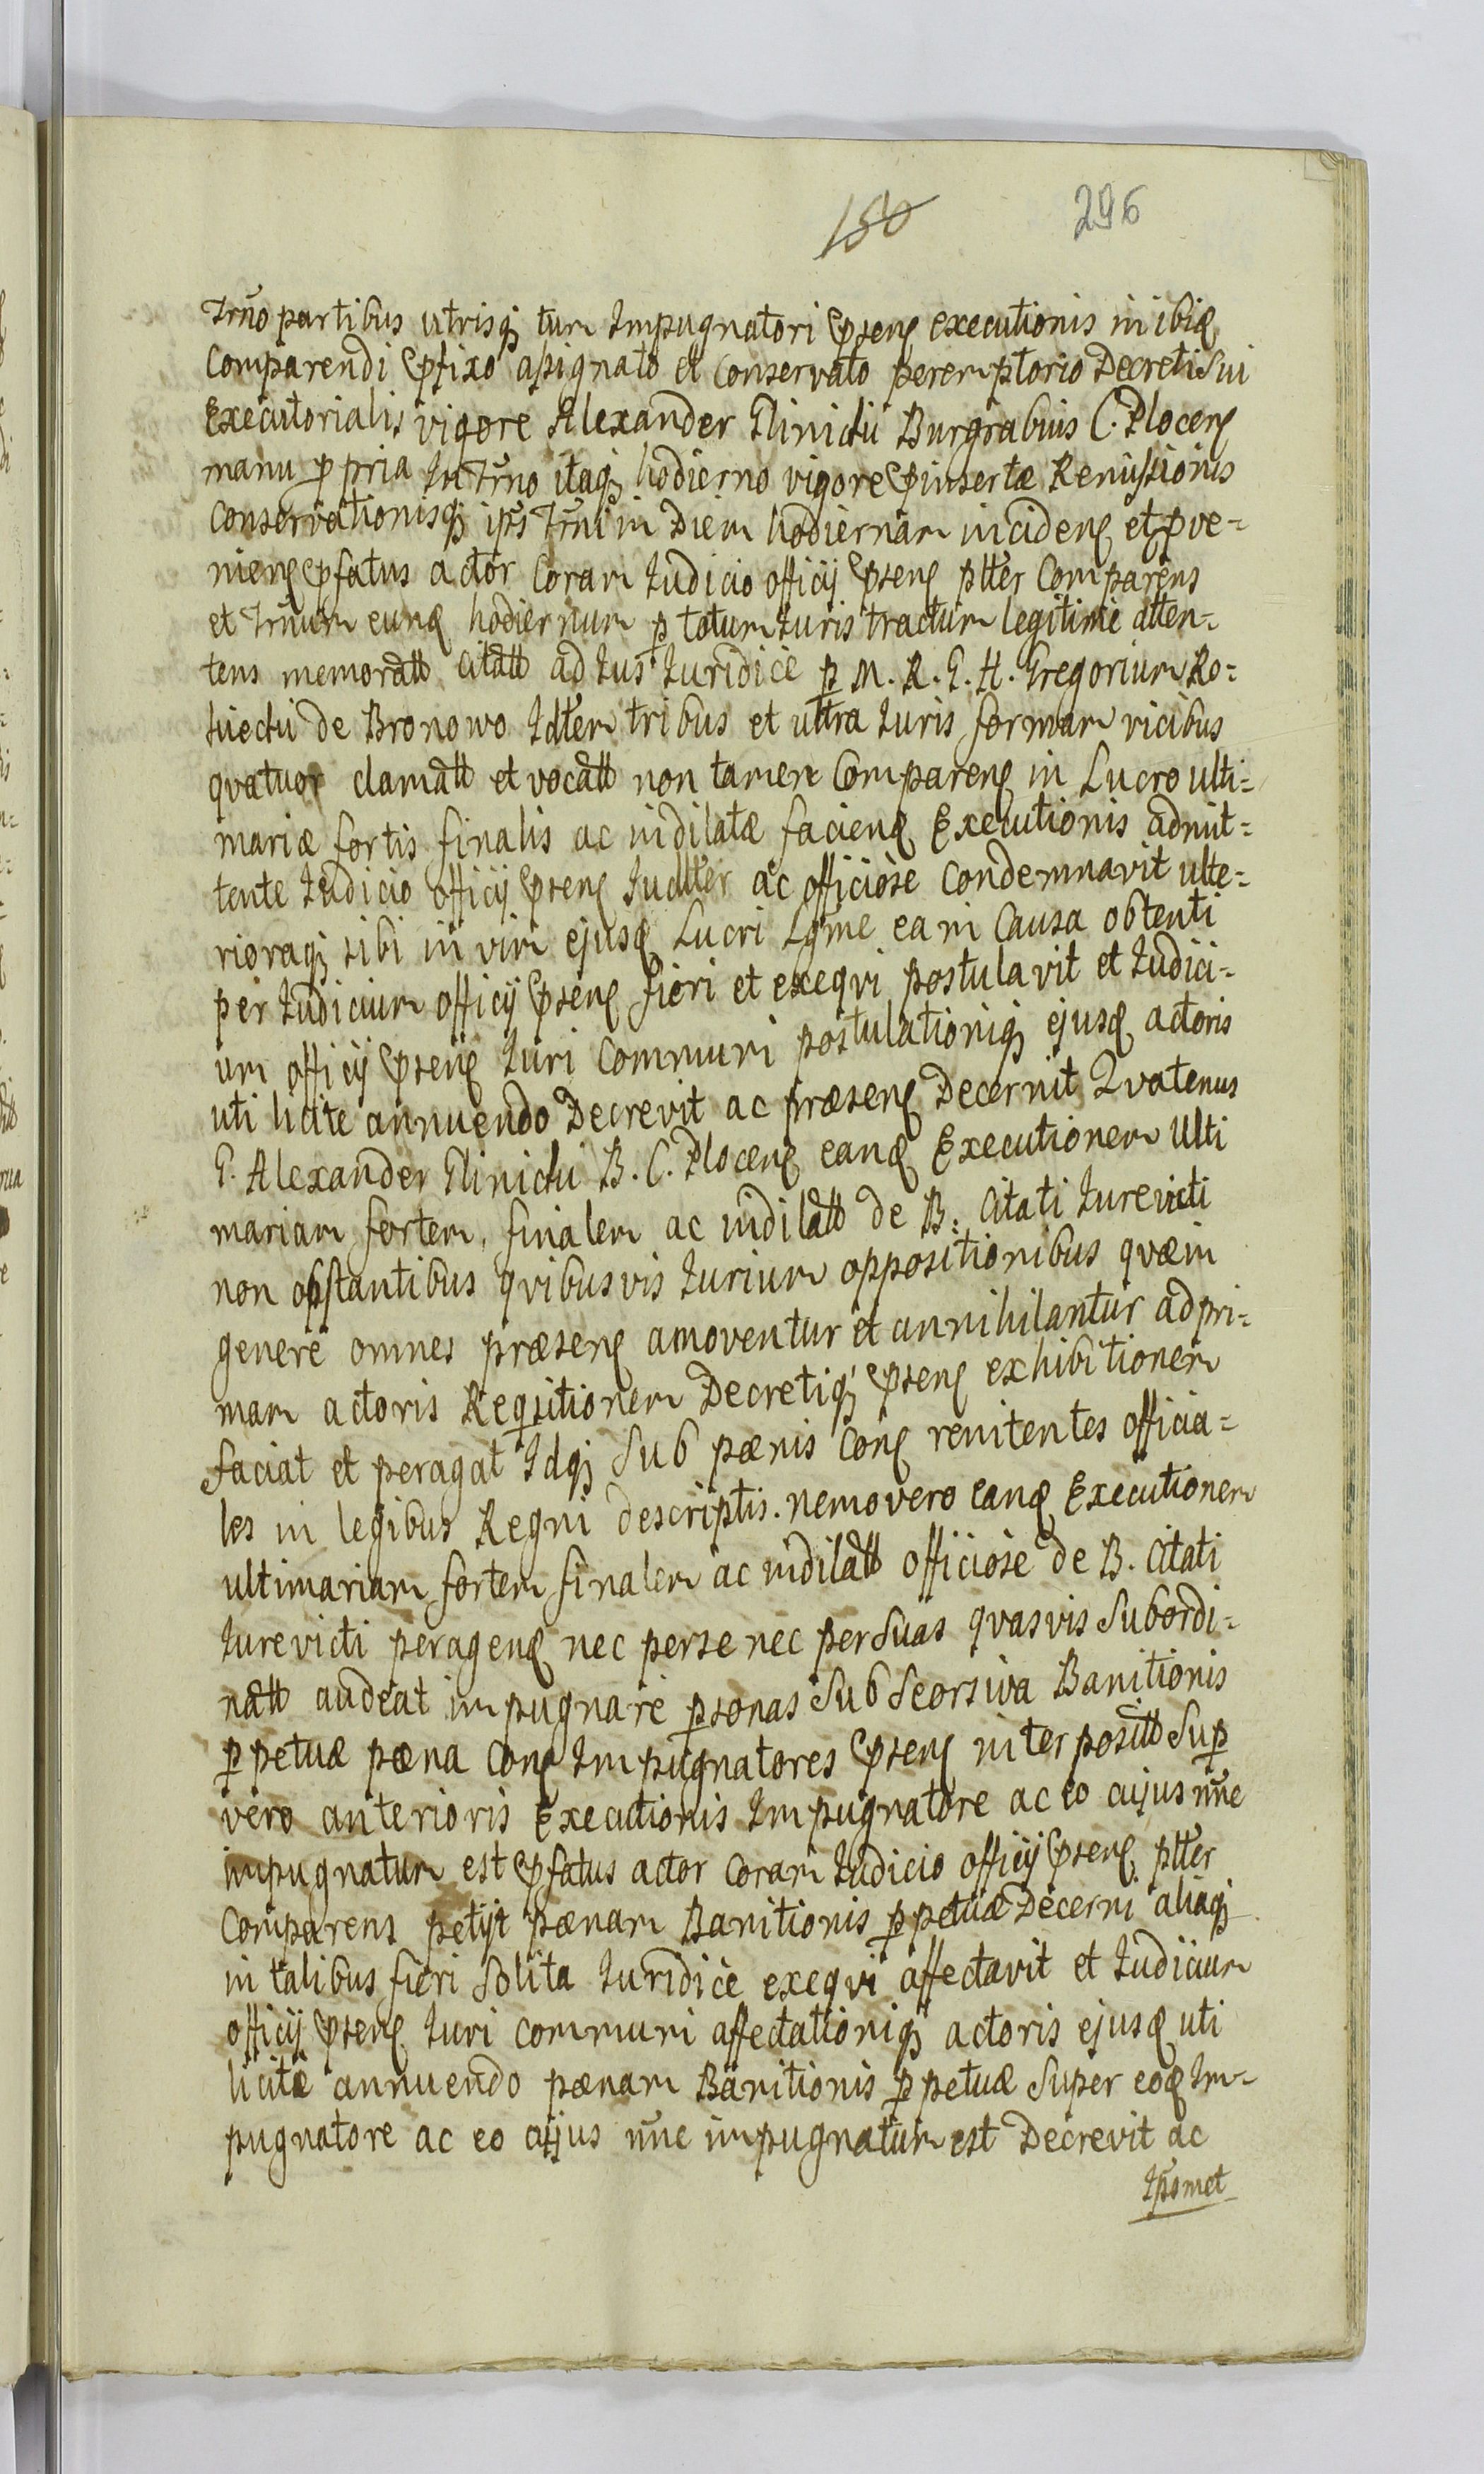 150 296
Trno partibus utrisq tum Impugnatori Pstens executionis inibiq
Comparendi Pfixo assignato et Conservato peremptorio Decreti Sui
Executorialis vigore Alexander Glinicki Burgrabius C. Plocens
manu ppria In Trno itaq hodierno vigore Pinsertæ Remissionis
Conservationisq ips Trni in Diem hodiernam incidens et pve-
niens Pfatus actor Coram Iudicio officij Psens ptter Comparens
et Trnum eund hodiernum p totum Iuris tractum legitime atten-
tens memoratt Citatt ad Ius Iuridice p M. R. G. H. Gregorium Ro-
de Bronowo Idter tribus et ultra Iuris formam vicibus
qvatuor clamatt et vocatt non tamen Comparens in Lucro ulti-
mariæ fortis finalis ac indilatæ faciend Executionis admit-
tente Iudicio officij Psens Iudtter ac officiose Condemnavit ulte-
rioraq sibi in vim ejusd Lucri Lgme ea in Causa obtenti
per Iudicium officij Psens fieri et exeqvi postulavit et Iudici-
um officij Psens Iuri Communi postulationiq ejusd actoris
uti licite annuendo Decrevit ac præsens Decernit Qvatenus
G. Alexander Glinicki B. C. Plocens eand Executionem Ulti
mariam fortem, finalem ac indilatt de B. Citati Iurevicti
non obstantibus qvibusvis Iurium oppositionibus qvæ in
genere omnes præsens amoventur et annihilantur ad pri-
mam actoris Reqsitionem Decretiq Psens exhibitionem
faciat et peragat Idq Sub pœnis Cons renitentes officia-
les in legibus Regni descriptis. nemo vero eand Executionem
ultimariam fortem finalem ac indilatt officiose de B. Citati
Iurevicti peragend nec per se nec per Suas qvasvis Subordi-
natt audeat impugnare psonas Sub Seorsiva Banitionis
ppetuæ pœna Cons Impugnatores Psens interpositt Sup
vero anterioris Executionis Impugnatore ac eo cujus nne
impugnatum est Pfatus actor Coram Iudicio officij Psens ptter
Comparens petijt pœnam Banitionis ppetuæ Decerni aliaq
in talibus fieri Solita Iuridice exeqvi affectavit et Iudicium
officij Psens Iuri communi affectationiq actoris ejusd uti
licitæ annuendo pœnam Banitionis ppetuæ Super eod Im-
pugnatore ac eo cujus nne impugnatum est Decrevit ac
Ipsmet